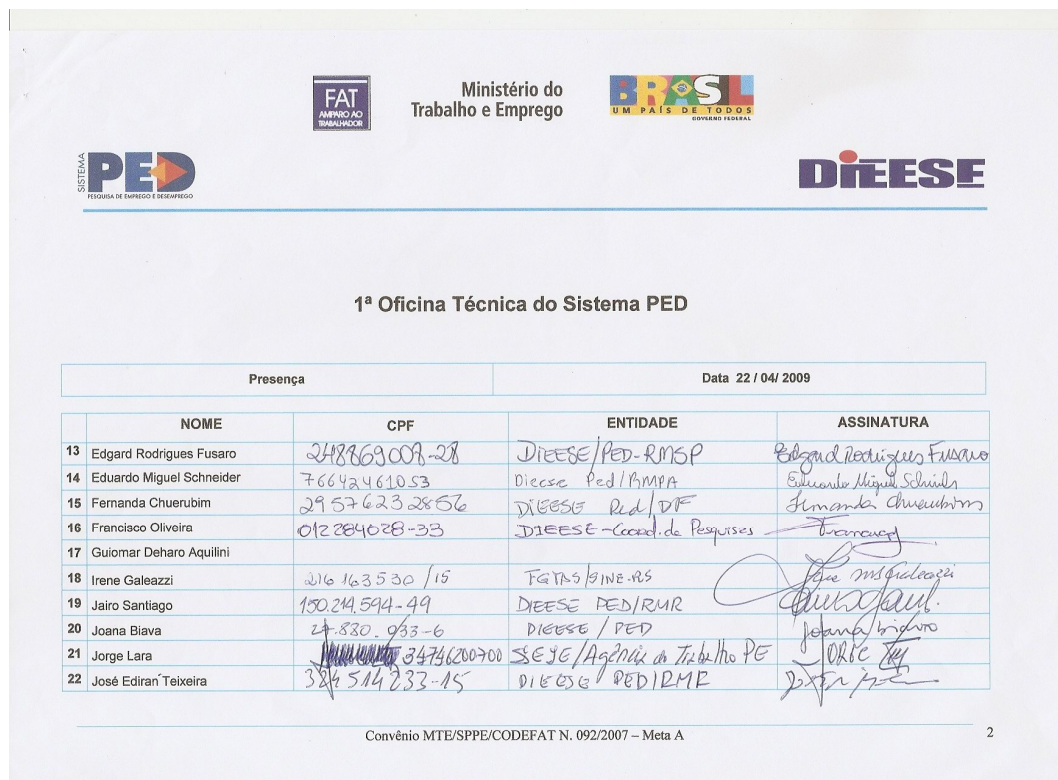 FAT
AMPARO AO
TRABALHADOR
Ministério do
Trabalho e Emprego
BRASIL
UM PAÍS DE TODOS
GOVERNO FEDERAL
SISTEMA
PED
PESQUISA DE EMPREGO E DESEMPREGO
DIEESE
1ª Oficina Técnica do Sistema PED
Presença Data 22 / 04/ 2009
NOME CPF ENTIDADE ASSINATURA
13 Edgard Rodrigues Fusaro 248869008-28 DIEESE/PED-RMSP Edgard Rodrigues Fusaro
14 Eduardo Miguel Schneider 76642461053 Dieese Ped/RMPA Eduardo Miguel Schneider
15 Fernanda Chuerubim 29576232856 DIEESE Ped/DF Fernanda Chuerubim
16 Francisco Oliveira 012284028-33 DIEESE-Coord. de Pesquises
17 Guiomar Deharo Aquilini
18 Irene Galeazzi 216163530/15 FGTAS/SINE-RS
19 Jairo Santiago 150.214.594-49 DIEESE PED/RMR
20 Joana Biava DIEESE/PED Joana
21 Jorge Lara 34746200700 /Agência do Trabalho PE JORGE
22 José Ediran Teixeira 324514233-15 DIEESE PED/RMR
Convênio MTE/SPPE/CODEFAT N. 092/2007 – Meta A
2